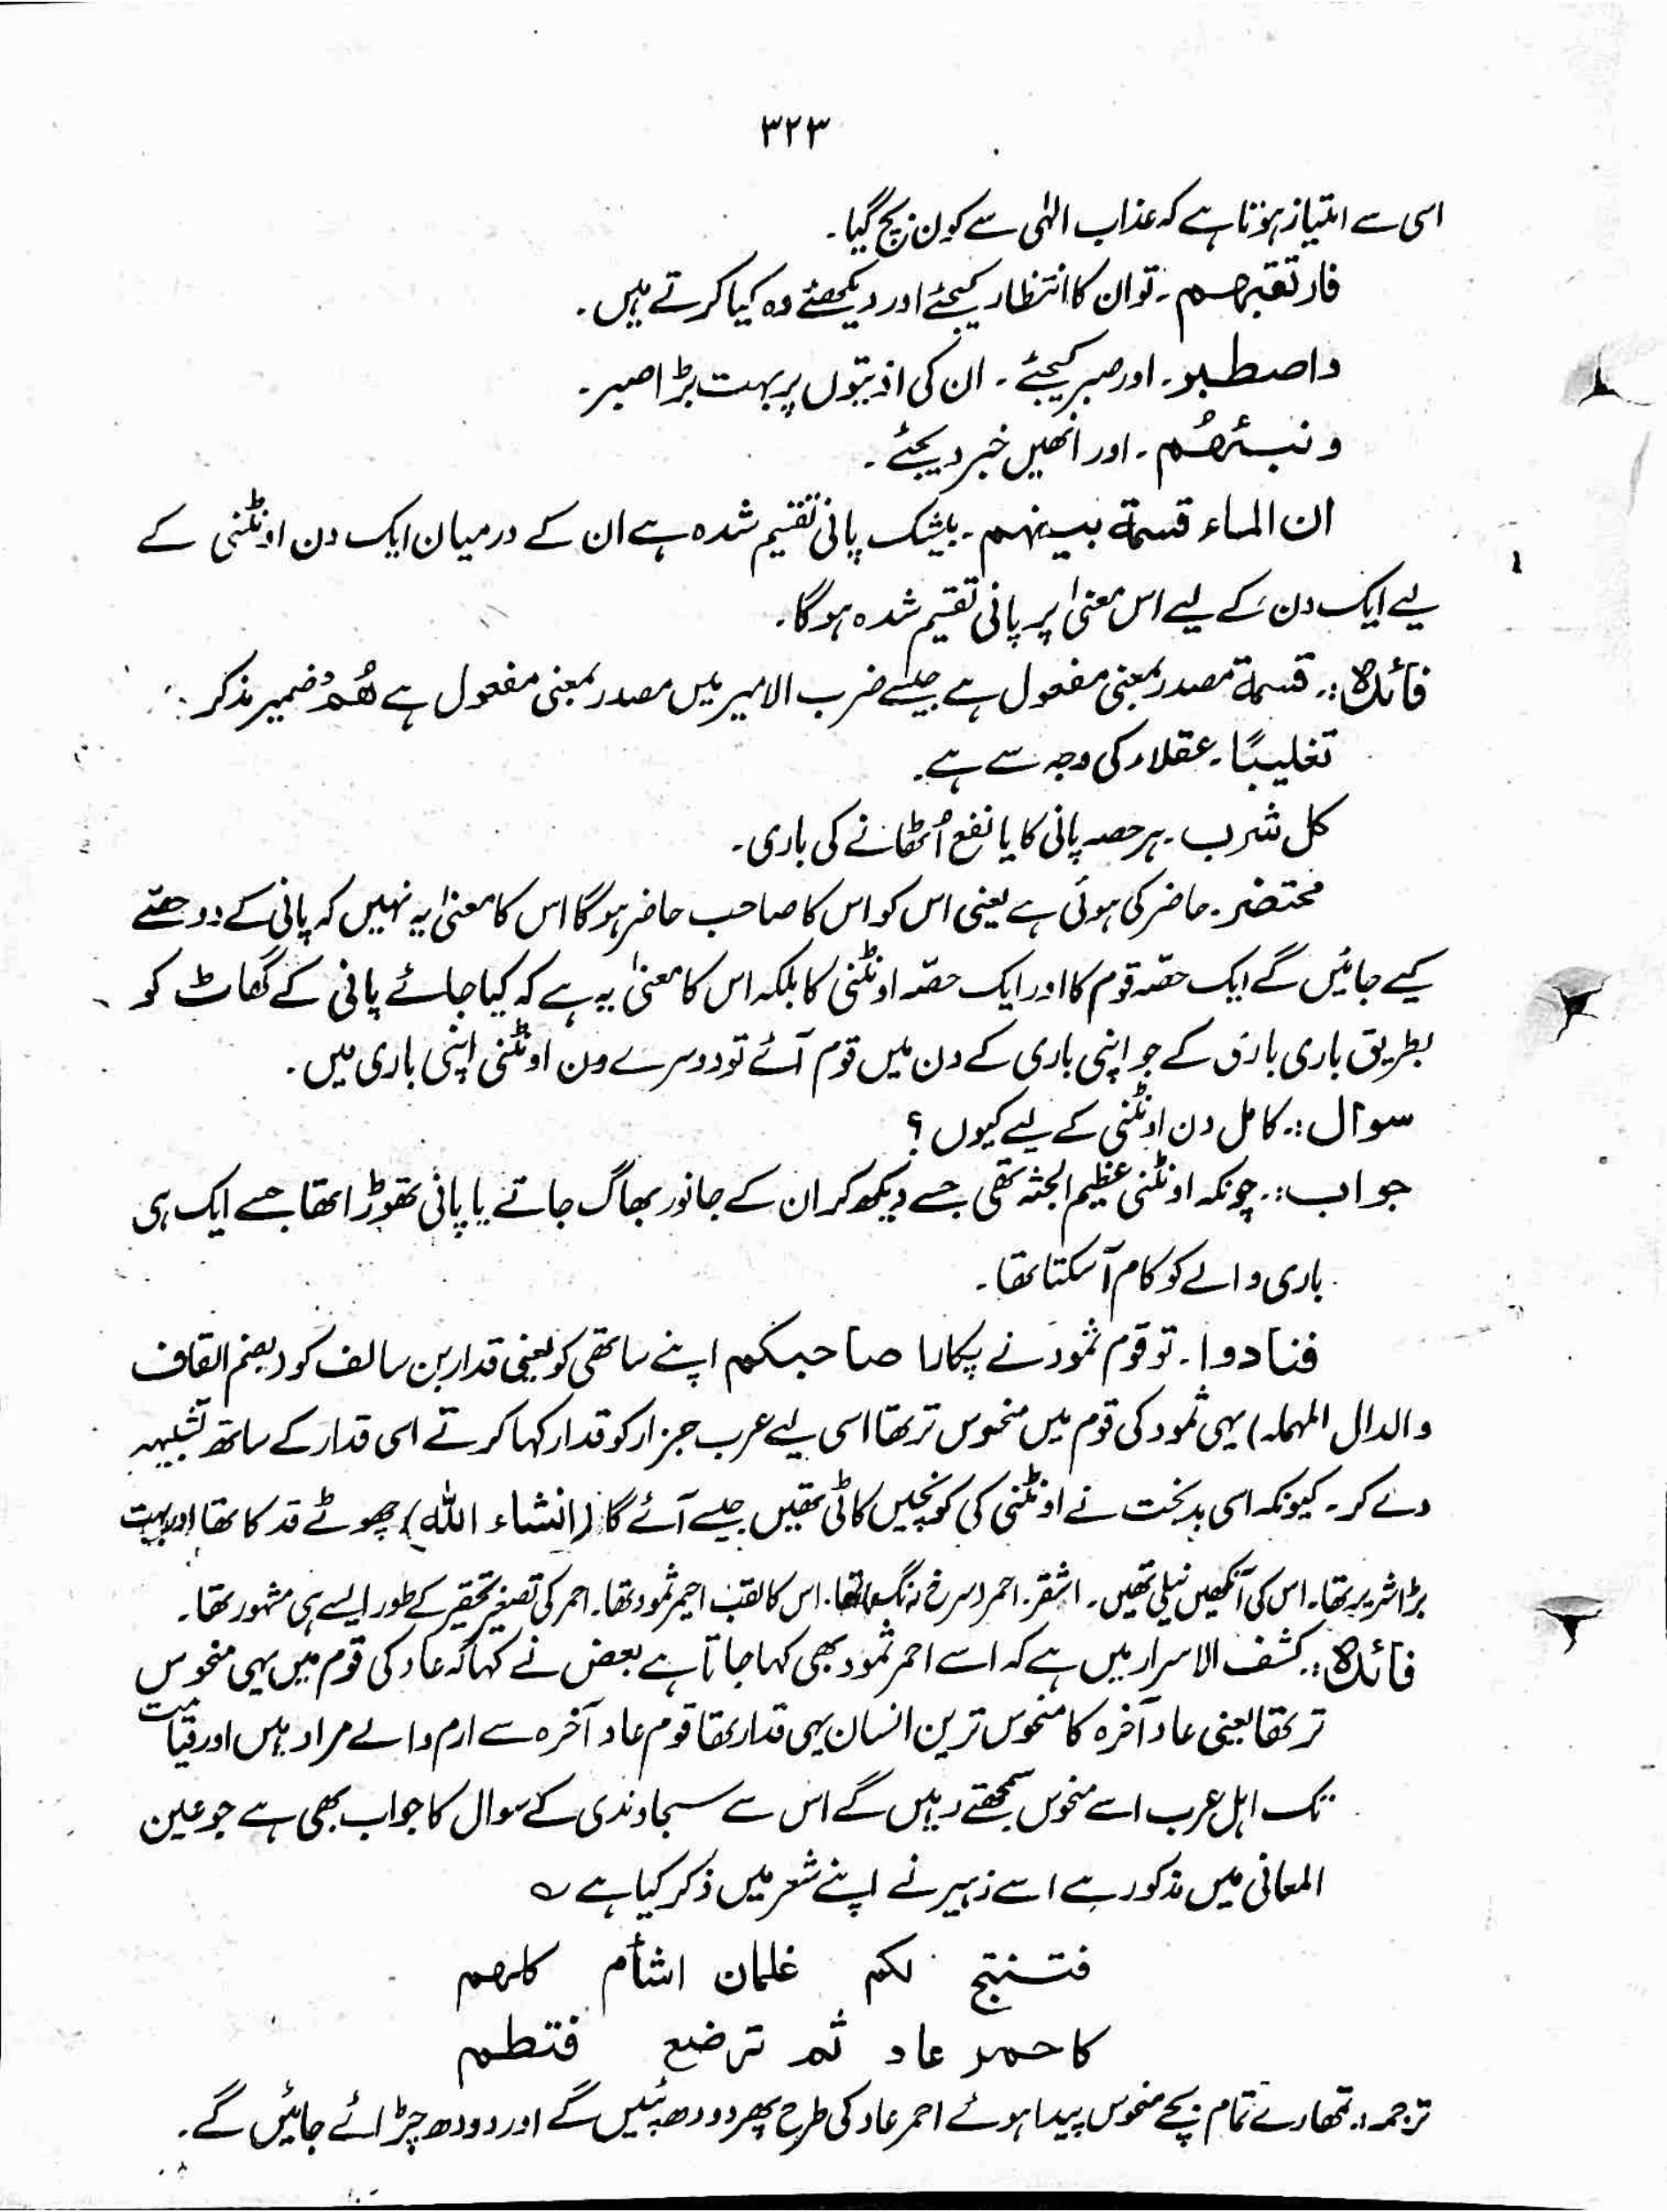 ۳۲۳
اسی سے امتیاز ہوتا ہے کہ عذاب الٰہی سے کون بچ گیا۔
فارتقبھم۔ تو ان کا انتظار کیجئے اور دیکھئے وہ کیا کرتے ہیں۔
واصطبر۔ اور صبر کیجئے۔ ان کی اذیتوں پر بہت بڑا صبر۔
و نبئھُم۔ اور انھیں خبر دیجئے۔
ان الماء قسمة بینھم۔ بیشک پانی تقسیم شدہ ہے ان کے درمیان ایک دن اونٹنی کے
لیے ایک دن، کے لیے اس معنیٰ پر پانی تقسیم شدہ ہوگا۔
فائدہ:۔ قسمة مصدر بمعنی مفعول ہے جیسے ضرب الامیر میں مصدر بمعنی مفعول ہے ھُمْ ضمیر مذکر
تغلیبًا۔ عقلاء کی وجہ سے ہے۔
کل شرب۔ ہر حصہ پانی کا یا نفع اُٹھانے کی باری۔
محتضر۔ حاضر کی ہوئی ہے یعنی اس کو اس کا صاحب حاضر ہوگا اس کا معنیٰ یہ نہیں کہ پانی کے دو حصّے
کیے جائیں گے ایک حصّہ قوم کا اور ایک حصّہ اونٹنی کا بلکہ اس کا معنیٰ یہ ہے کہ کیا جائے پانی کے گھاٹ کو
بطریق باری باری کے جو اپنی باری کے دن میں قوم آئے تو دوسرے دن اونٹنی اپنی باری میں۔
سوال:۔ کامل دن اونٹنی کے لیے کیوں؟
جواب:۔ چونکہ اونٹنی عظیم الجثہ تھی جسے دیکھ کر ان کے جانور بھاگ جاتے یا پانی تھوڑا تھا جسے ایک ہی
باری والے کو کام آسکتا تھا۔
فنادوا۔ تو قوم ثمود نے پکارا صاحبکم اپنے ساتھی کو یعنی قدار بن سالف کو (بضم القاف
والدال المہملہ) یہی ثمود کی قوم میں منحوس تر تھا اسی لیے عرب جزار کو قدار کہا کرتے اسی قدار کے ساتھ تشبیہہ
دے کر۔ کیونکہ اسی بدبخت نے اونٹنی کی کونچیں کاٹی تھیں جیسے آئے گا (انشاء اللہ) چھوٹے قد کا تھا اور بہت
بڑا شریر تھا۔ اس کی آنکھیں نیلی تھیں۔ اشقر۔ احمر (سرخ رنگ والا تھا۔ اس کا لقب احیمر ثمود تھا۔ احمر کی تصغیر تحقیر کے طور ایسے ہی مشہور تھا۔
فائدہ:۔ کشف الاسرار میں ہے کہ اسے احمر ثمود بھی کہا جاتا ہے بعض نے کہا کہ عاد کی قوم میں یہی منحوس
تر تھا یعنی عاد آخرہ کا منحوس ترین انسان یہی قدار تھا قوم عاد آخرہ سے ارم والے مراد ہیں اور قیامت
تک اہل عرب اسے منحوس سمجھتے رہیں گے اس سے سجاوندی کے سوال کا جواب بھی ہے جو عین
المعانی میں مذکور ہے اسے زہیر نے اپنے شعر میں ذکر کیا ہے ؎
فتنتج لکم غلمان اشأم کلھم
کاحمر عاد ثم ترضع فتطم
ترجمہ:۔ تمھارے تمام بچے منحوس پیدا ہوئے احمر عاد کی طرح پھر دودھ پئیں گے اور دودھ چڑائے جائیں گے۔